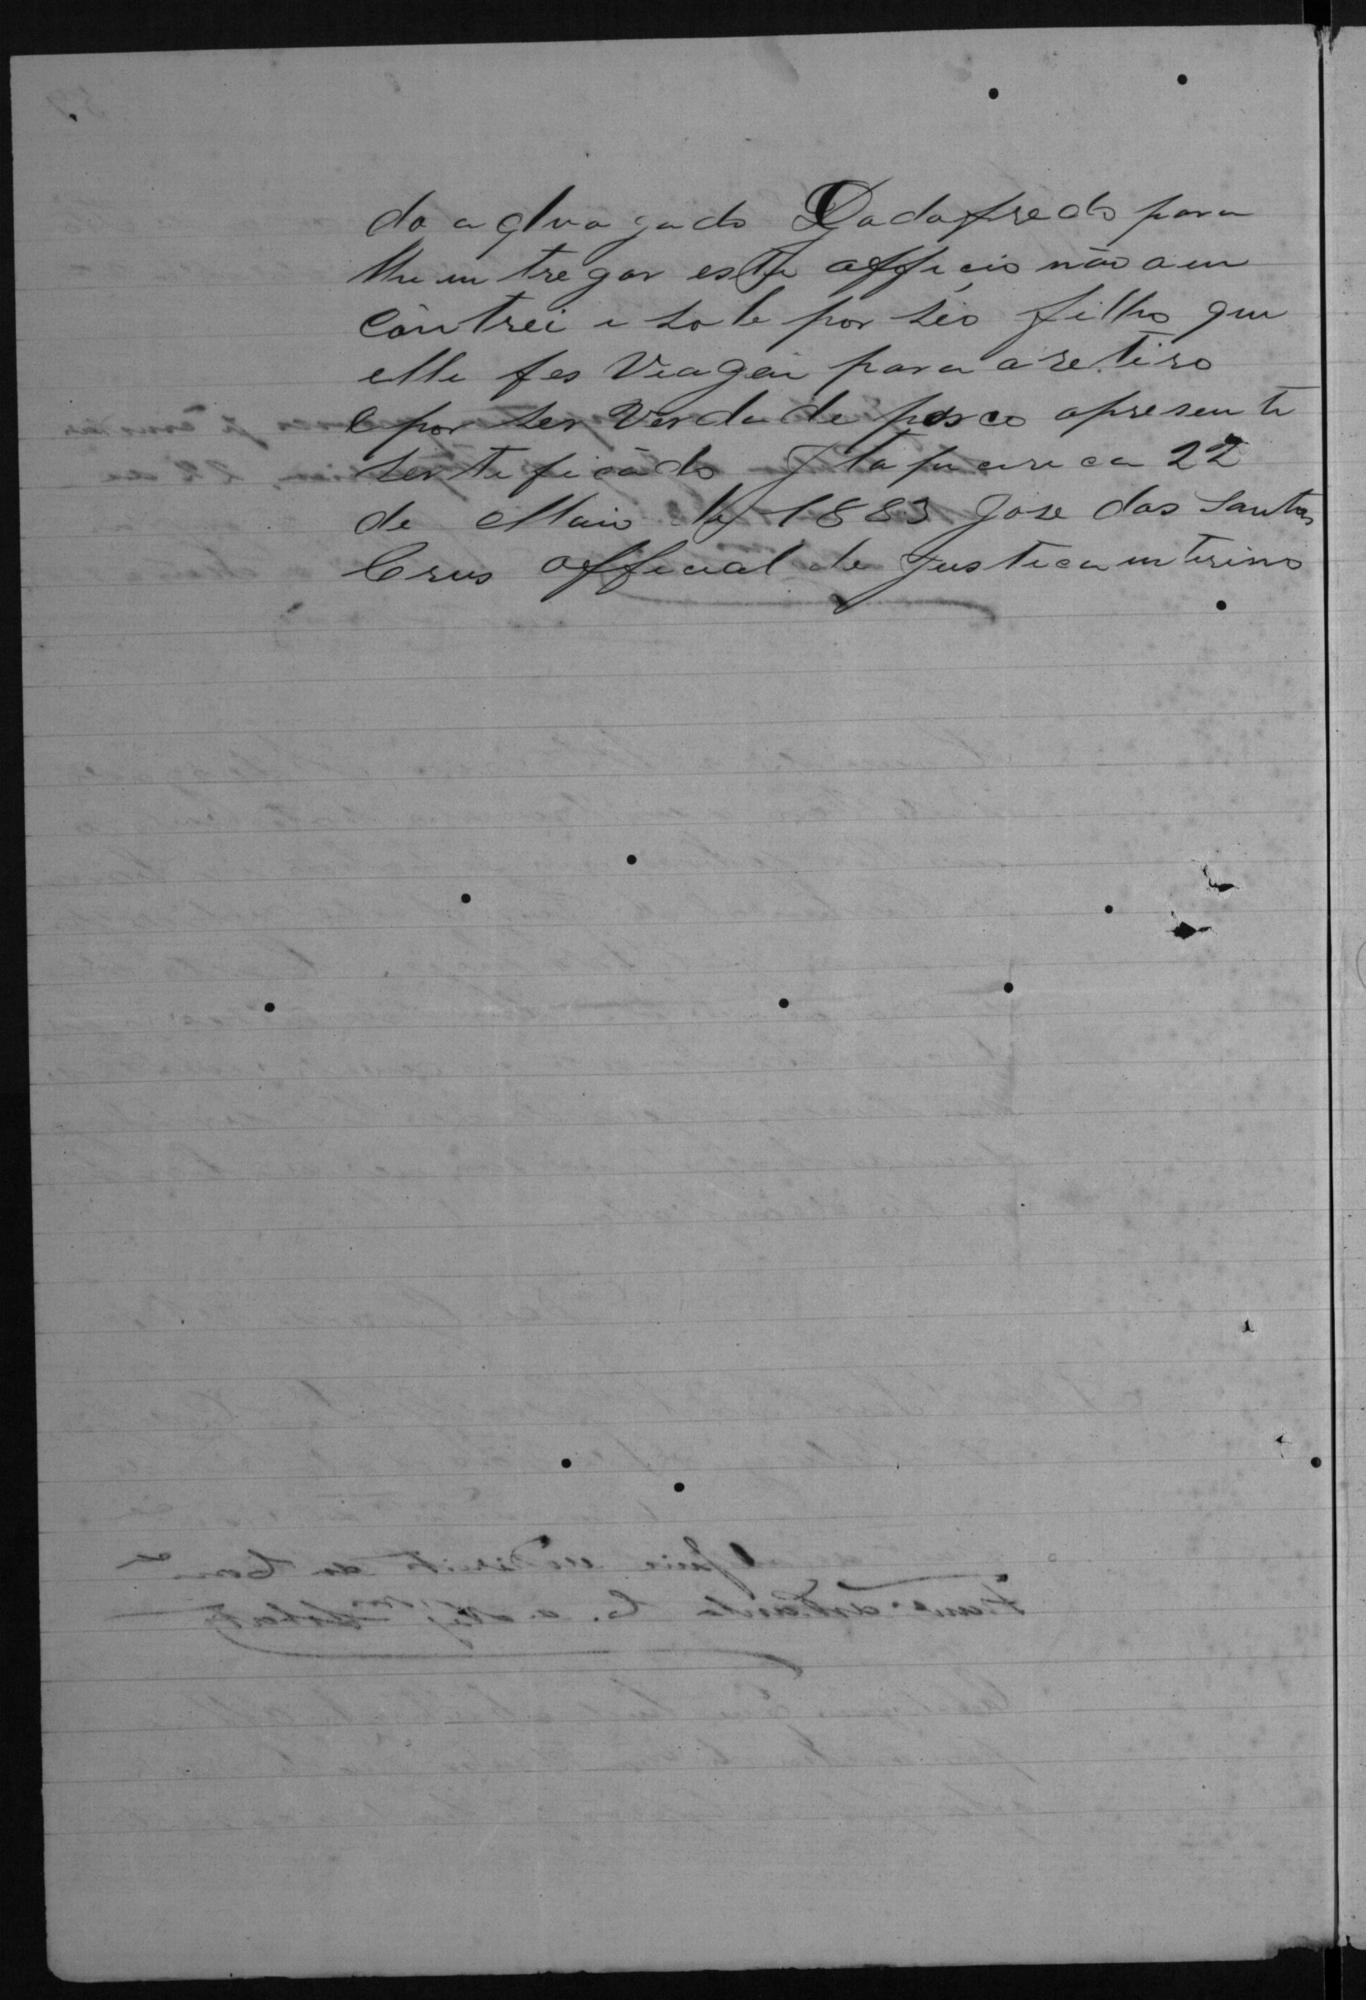 do advogado Godofredo para
lhe entregar este officio não a en
contrei e sobe por seo filho que
elle fes viagem para o retiro
e por ser verdade paço apresente
sertificádo Itapucuruca 22
de Maio de 1883 Jose dos Santos
Crus official de Justica enterino